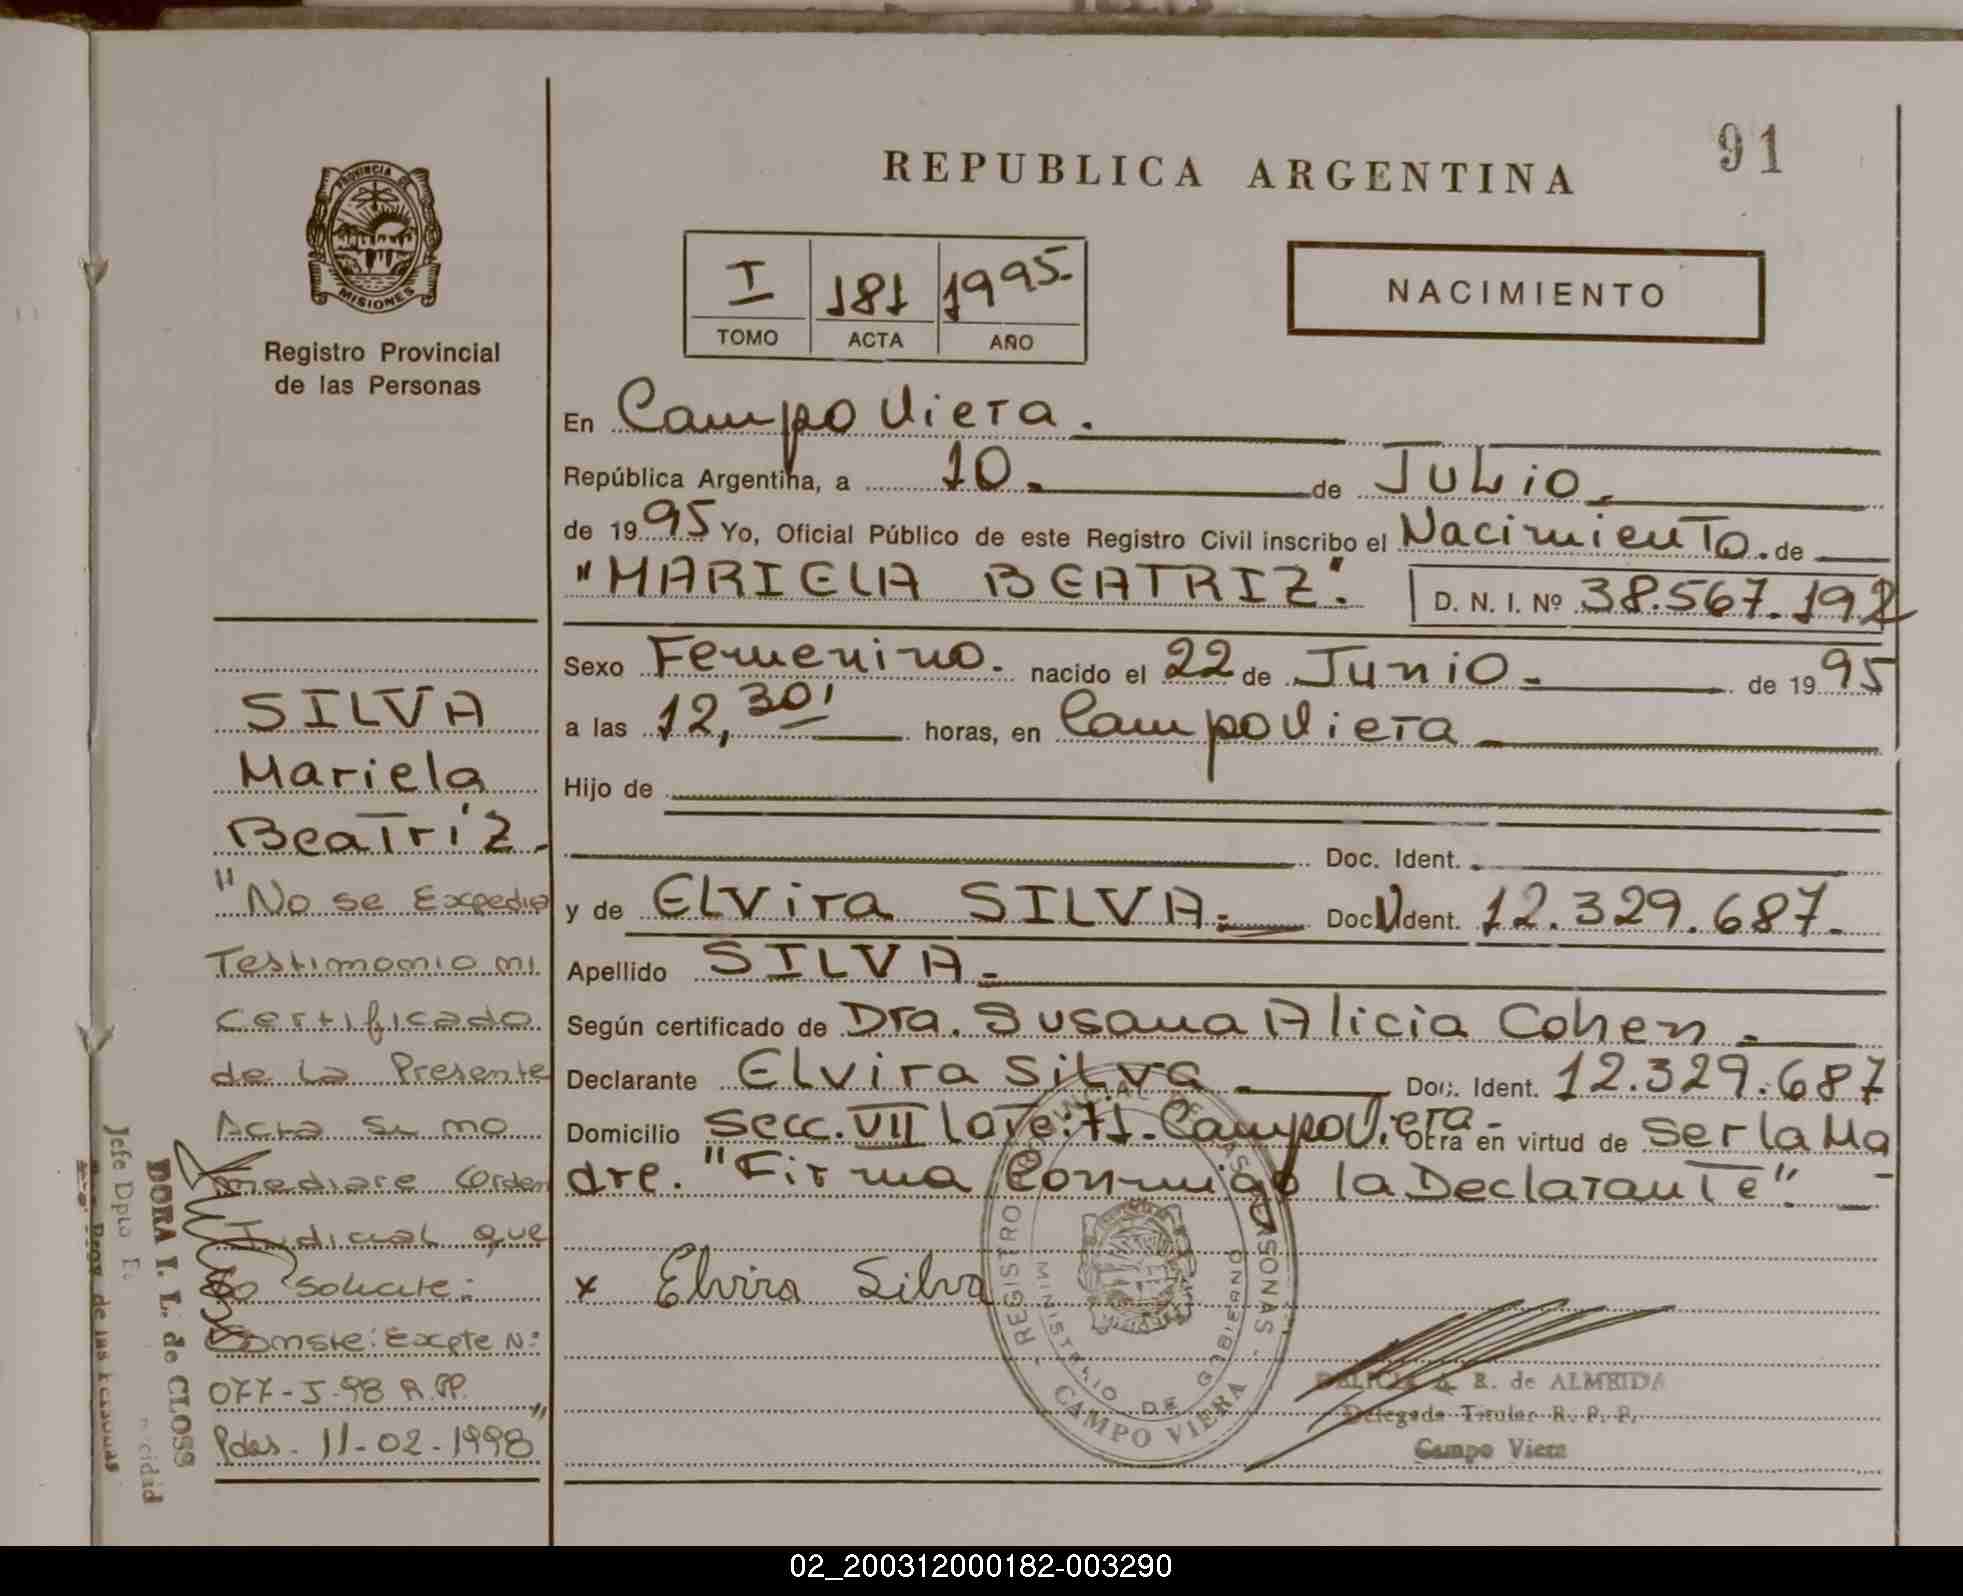 91
REPUBLICA ARGENTINA
PROVINCIA DE
MISIONES
Registro Provincial
de las Personas
I 181 1995.-
TOMO ACTA AÑO
NACIMIENTO
En Campo Viera.
República Argentina, a 10. de Julio.
de 1995 Yo, Oficial Público de este Registro Civil inscribo el Nacimiento. de
"MARIELA BEATRIZ". D. N. I. Nº 38.567.192
Sexo Femenino. nacido el 22 de Junio. de 1995
a las 12,30' horas, en Campo Viera
Hijo de
Doc. Ident.
y de Elvira SILVA.- Doc. Ident. 12.329.687.-
Apellido SILVA.-
Según certificado de Dra. Susana Alicia Cohen.-
Declarante Elvira Silva Doc. Ident. 12.329.687
Domicilio Secc. VII lote: 71-Campo Viera- Otra en virtud de ser la Ma
dre. "Firma Conmigo la Declarante".-
x Elvira Silva
SILVA
Mariela
Beatriz.
"No se Expedira
Testimonio ni
Certificado
de La Presente
Acta si no
mediare Orden
Judicial que
lo solicite:
Conste: Expte N:
077-J-98 R.PP.
Pdas. 11-02-1998"
DORA I. L. de CLOSS
Jefe Dpto
de las Personas
REGISTRO PERSONAS
MINISTERIO DE GOBIERNO
CAMPO VIERA
DELICIA A. R. de ALMEIDA
Delegada Titular R. P. P.
Campo Viera
02_200312000182-003290